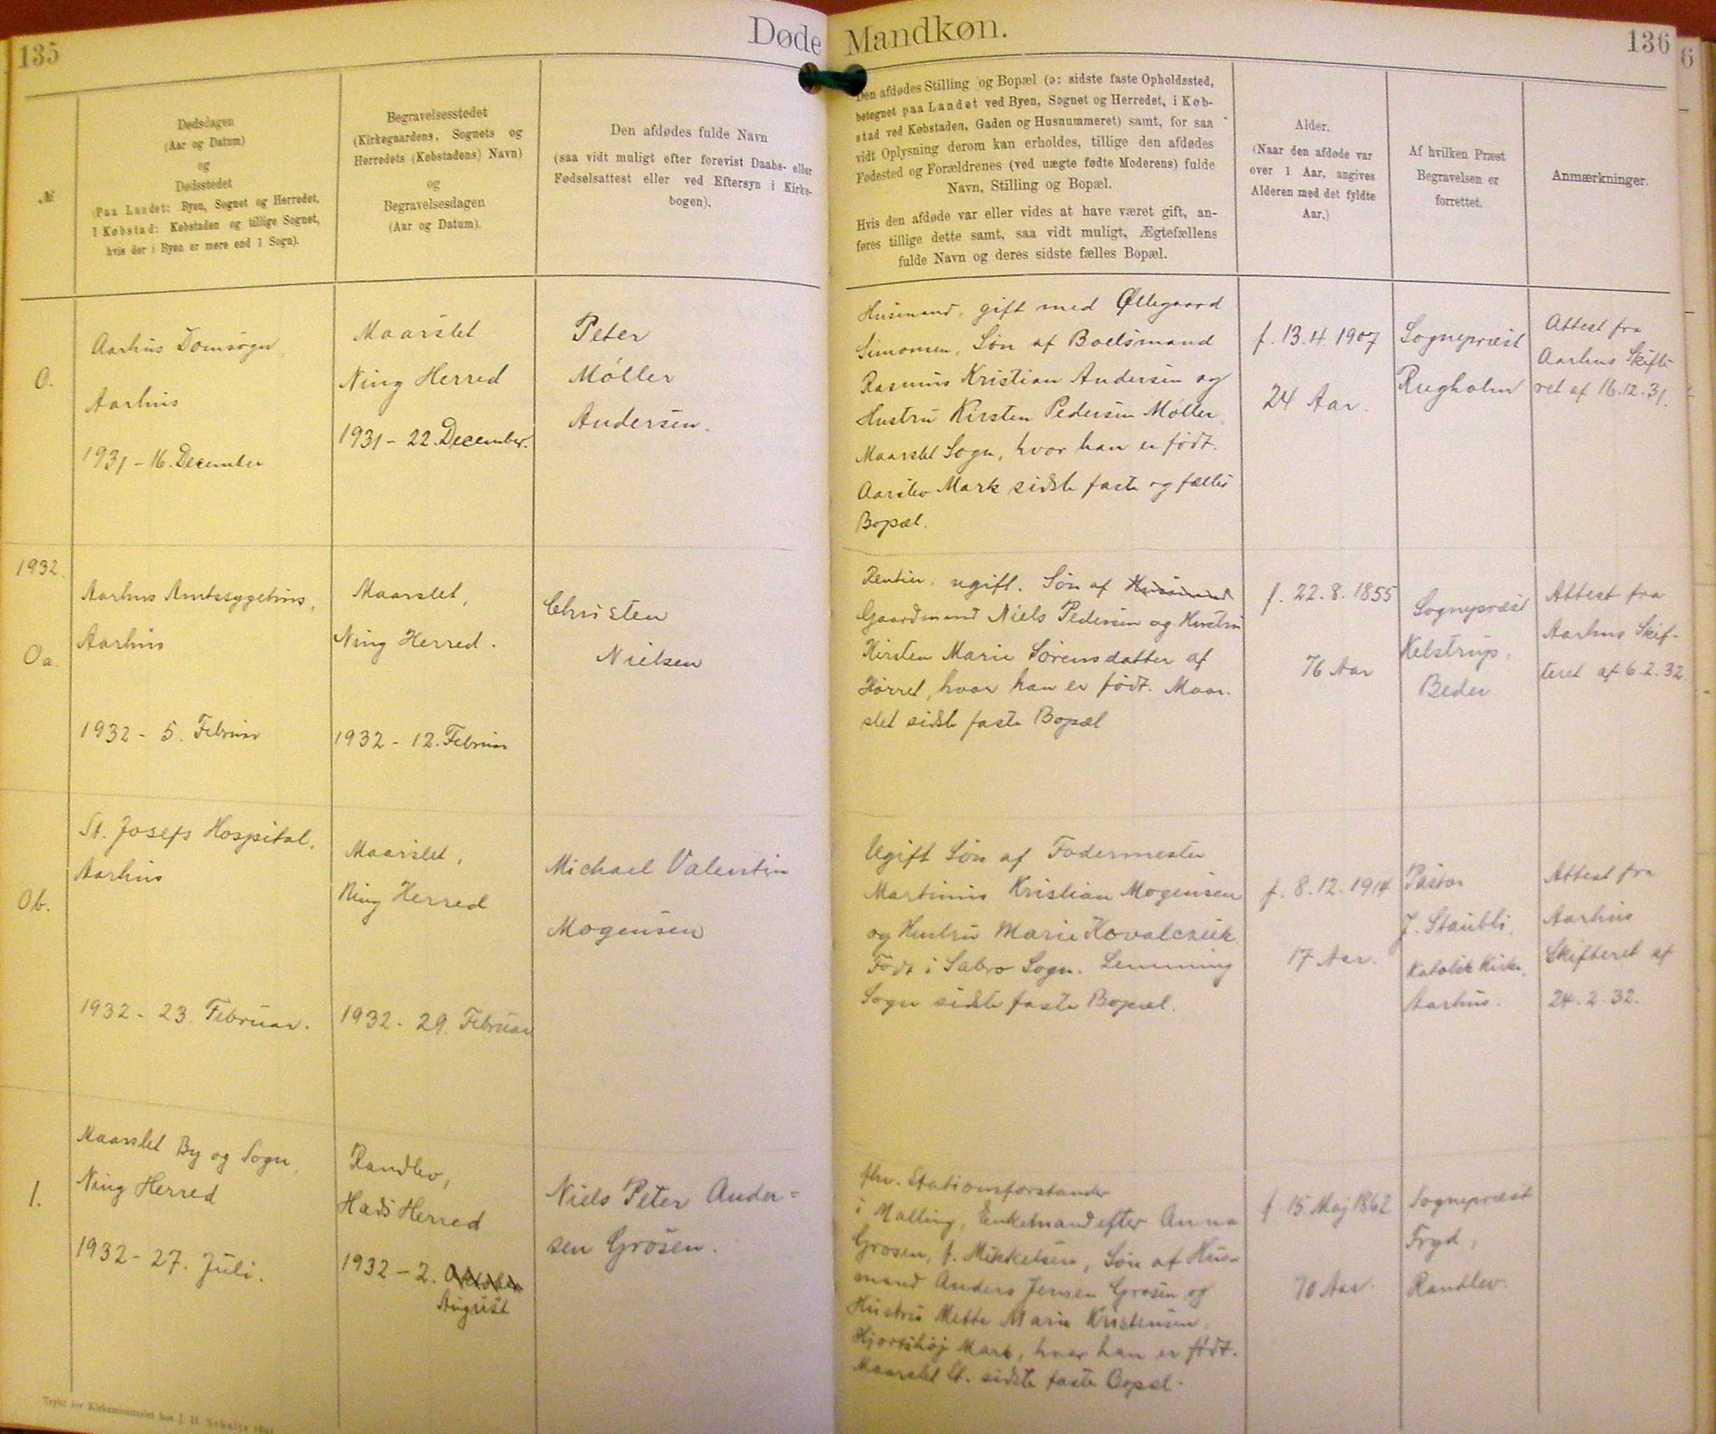 135
Døde Mandkøn.
136
6
№
Dødsdagen
(Aar og Datum)
og
Dødsstedet
(Paa Landet: Byen, Sognet og Herredet,
I Købstad: Købstaden og tillige Sognet,
hvis der i Byen er mere end 1 Sogn).
Begravelsesstedet
(Kirkegaardens, Sognets og
Herredets (Købstadens) Navn)
og
Begravelsesdagen
(Aar og Datum).
Den afdødes fulde Navn
(saa vidt muligt efter forevist Daabs- eller
Fødselsattest eller ved Eftersyn i Kirke-
bogen).
Den afdødes Stilling og Bopæl (ɔ: sidste faste Opholdssted,
betegnet paa Landet ved Byen, Sognet og Herredet, i Køb-
stad ved Købstaden, Gaden og Husnummeret) samt, for saa
vidt Oplysning derom kan erholdes, tillige den afdødes
Fødested og Forældrenes (ved uægte fødte Moderens) fulde
Navn, Stilling og Bopæl.
Hvis den afdøde var eller vides at have været gift, an-
føres tillige dette samt, saa vidt muligt, Ægtefællens
fulde Navn og deres sidste fælles Bopæl.
Alder.
(Naar den afdøde var
over 1 Aar, angives
Alderen med det fyldte
Aar.)
Af hvilken Præst
Begravelsen er
forrettet.
Anmærkninger.
0.
Aarhus Domsogn
Aarhus
1931 - 16. December
Maarslet
Ning Herred
1931 - 22. December.
Peter
Møller
Andersen.
Husmand, gift med Øllegaard
Simonsen, Søn af Boelsmand
Rasmus Kristian Andersen og
Hustru Kirsten Pedersen Møller,
Maarslet Sogn, hvor han er født.
Aarslev Mark sidste faste og fælles
Bopæl.
f. 13.4.1907
24 Aar.
Sognepræst
Rugholm
Attest fra
Aarhus Skifte-
ret af 16.12.31.
1932.
0a.
Aarhus Amtssygehus,
Aarhus
1932 - 5. Februar
Maarslet,
Ning Herred.
1932 - 12. Februar
Christen
Nielsen
Rentier, ugift. Søn af Husmand
Gaardmand Niels Pedersen og Hustru
Kirsten Marie Sørensdatter af
Hørret, hvor han er født. Maar-
slet sidste faste Bopæl
f. 22.8.1855
76 Aar
Sognepræst
Kelstrup,
Beder
Attest fra
Aarhus Skif-
teret af 6.2.32.
0b.
St. Josefs Hospital,
Aarhus
1932 - 23. Februar.
Maarslet,
Ning Herred
1932 - 29. Februar
Michael Valentin
Mogensen
Ugift Søn af Fodermester
Martinus Kristian Mogensen
og Hustru Marie Kovalczuk
Født i Sabro Sogn. Lemming
Sogn sidste faste Bopæl.
f. 8.12.1914
17 Aar.
Pastor
J. Staubli,
Katolsk Kirke,
Aarhus.
Attest fra
Aarhus
Skifteret af
24.2.32.
1.
Maarslet By og Sogn,
Ning Herred
1932 - 27. Juli.
Randlev,
Hads Herred
1932 - 2. Oktober
August
Niels Peter Ander=
sen Grosen.
fhv. Stationsforstander
i Malling, Enkemand efter Anna
Grosen, f. Mikkelsen, Søn af Hus-
mand Anders Jensen Grosen og
Hustru Mette Marie Kristensen,
Hjortshøj Mark, hvor han er født.
Maarslet St. sidste faste Bopæl.
f. 15. Maj 1862
70 Aar.
Sognepræst
Fryd,
Randlev.
Trykt for Kirkeministeriet hos J. H. Schultz